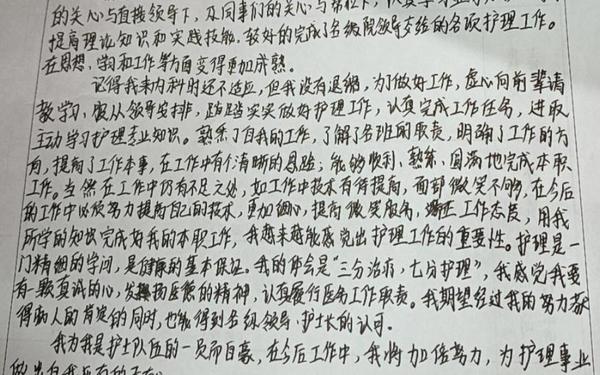 的关心与直接领导下，及同事们的关心与帮助下，
提高理论知识和实践技能，较好的完成了各级院领导交给的各项护理工作。
在思想、学习和工作等方面变得更加成熟。
记得我来内科时还不适应，但我没有退缩，为了做好工作，虚心向前辈请
教学习，服从领导安排，踏踏实实做好护理工作，认真完成工作任务，进取
主动学习护理专业知识。熟练了自我的工作，了解了各班的职责，明确了工作的方
向，提高了工作本事，在工作中有个清晰的思路，能够顺利、熟练、圆满地完成本职
工作。当然在工作中仍有不足之处，如工作中技术有待提高，面部微笑不够，在今后
的工作中必须努力提高自己的技术，更加细心，提高微笑服务，端正工作态度，用我
所学的知识完成好我的本职工作，我越来越能感觉出护理工作的重要性。护理是一
门精细的学问，是健康的基本保证。我的体会是“三分治疗，七分护理”，我感觉我要
有一颗真诚的心，发扬医德的精神，认真履行医务工作职责。我期望经过我的努力获
得病人的肯定的同时，也能得到各级领导、护士长的认可。
我为我是护士队伍的一员而自豪，在今后工作中，我将加倍努力，为护理事业